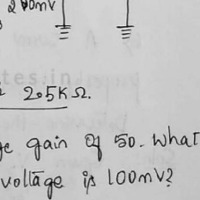 200mV
2.5KΩ.
gain of 50. what
voltage is 100mV?